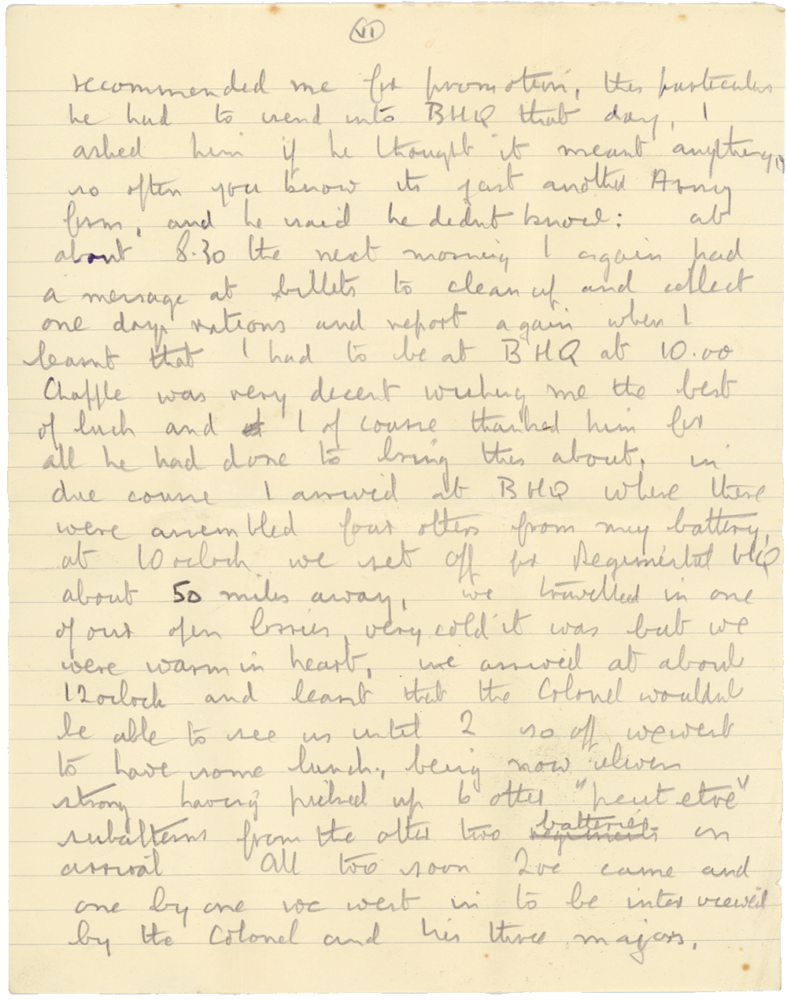 VI
recommended me for promotion, this particulars
he had to send into BHQ that day, I
asked him if he thought it meant anything,
so often you know its just another Army
form, and he said he didnt know: at
about 8.30 the next morning I again had
a message at billets to clean up and collect
one days rations and report again when I
learnt that I had to be at BHQ at 10.00
Chaffle was very decent wishing me the best
of luck and I of course thanked him for
all he had done to bring this about, in
due course I arrived at BHQ where there
were assembled four others from my battery,
at 10 oclock we set off for Regimental HQ
about 50 miles away, we travelled in one
of our open lorries, very cold it was but we
were warm in heart, we arrived at about
12 oclock and learnt that the Colonel wouldnt
be able to see us until 2 so off we went
to have some lunch, being now eleven
strong having picked up 6 other "peut etre"
subalterns from the other two batteries on
arrival All too soon 2oc came and
one by one we went in to be interviewed
by the Colonel and his three majors.